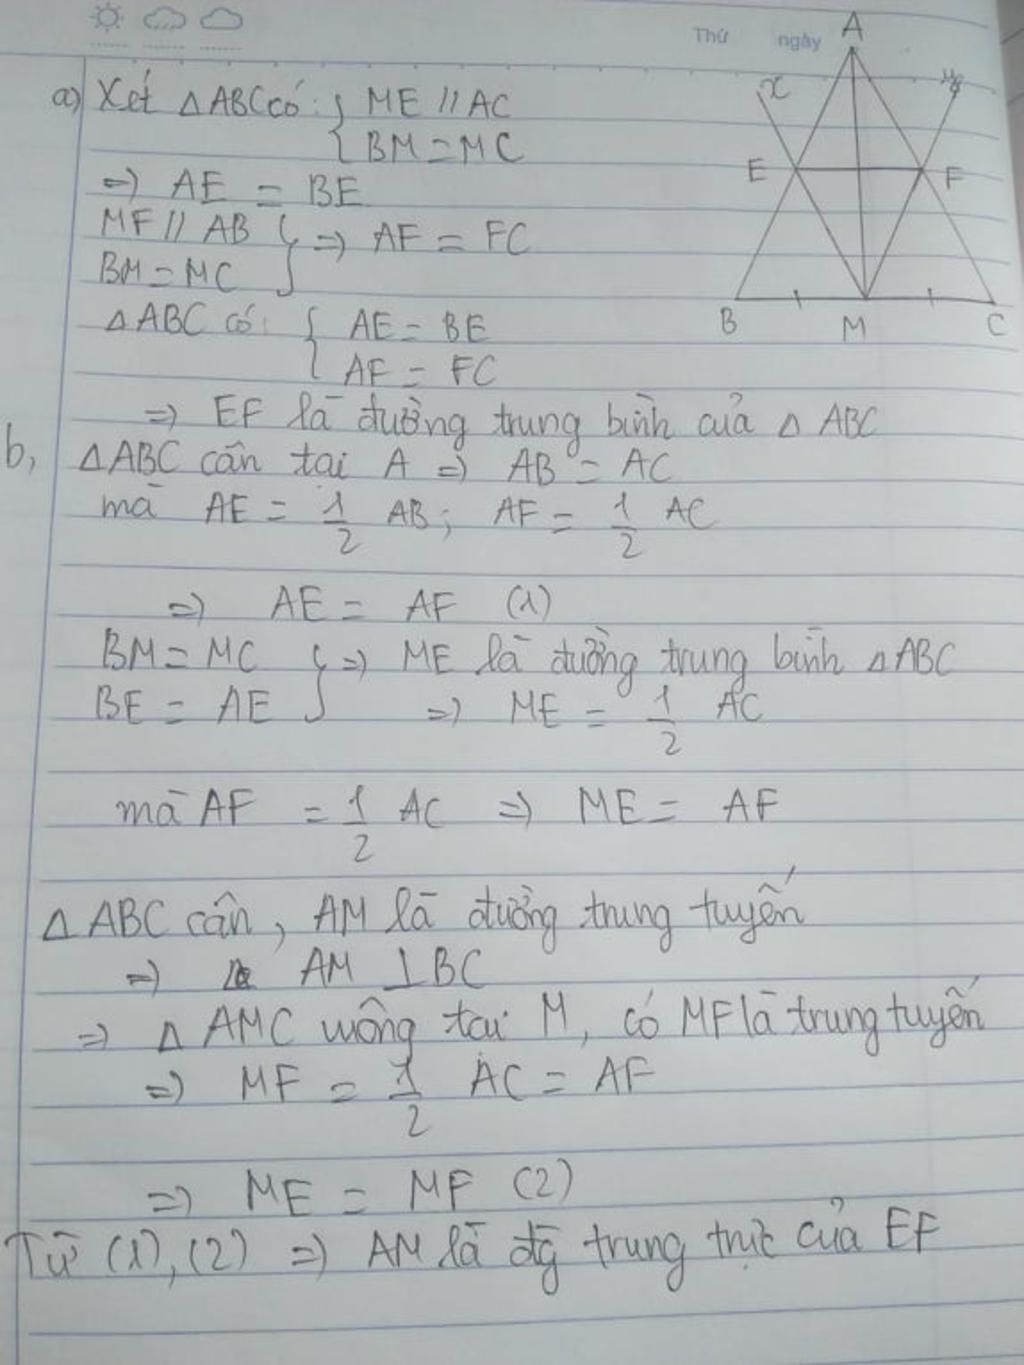 Thứ ngày
A
a) Xét △ABC có: { ME // AC
BM = MC
x
y
=> AE = BE
E F
MF // AB } => AF = FC
BM = MC
△ABC có: { AE = BE
AF = FC
B M C
=> EF là đường trung bình của △ ABC
b, △ABC cân tại A => AB = AC
mà AE = 1/2 AB; AF = 1/2 AC
=> AE = AF (1)
BM = MC } => ME là đường trung bình △ABC
BE = AE => ME = 1/2 AC
mà AF = 1/2 AC => ME = AF
△ ABC cân, AM là đường trung tuyến
=> AM ⊥ BC
=> △ AMC vuông tại M, có MF là trung tuyến
=> MF = 1/2 AC = AF
=> ME = MF (2)
Từ (1), (2) => AM là đg trung trực của EF